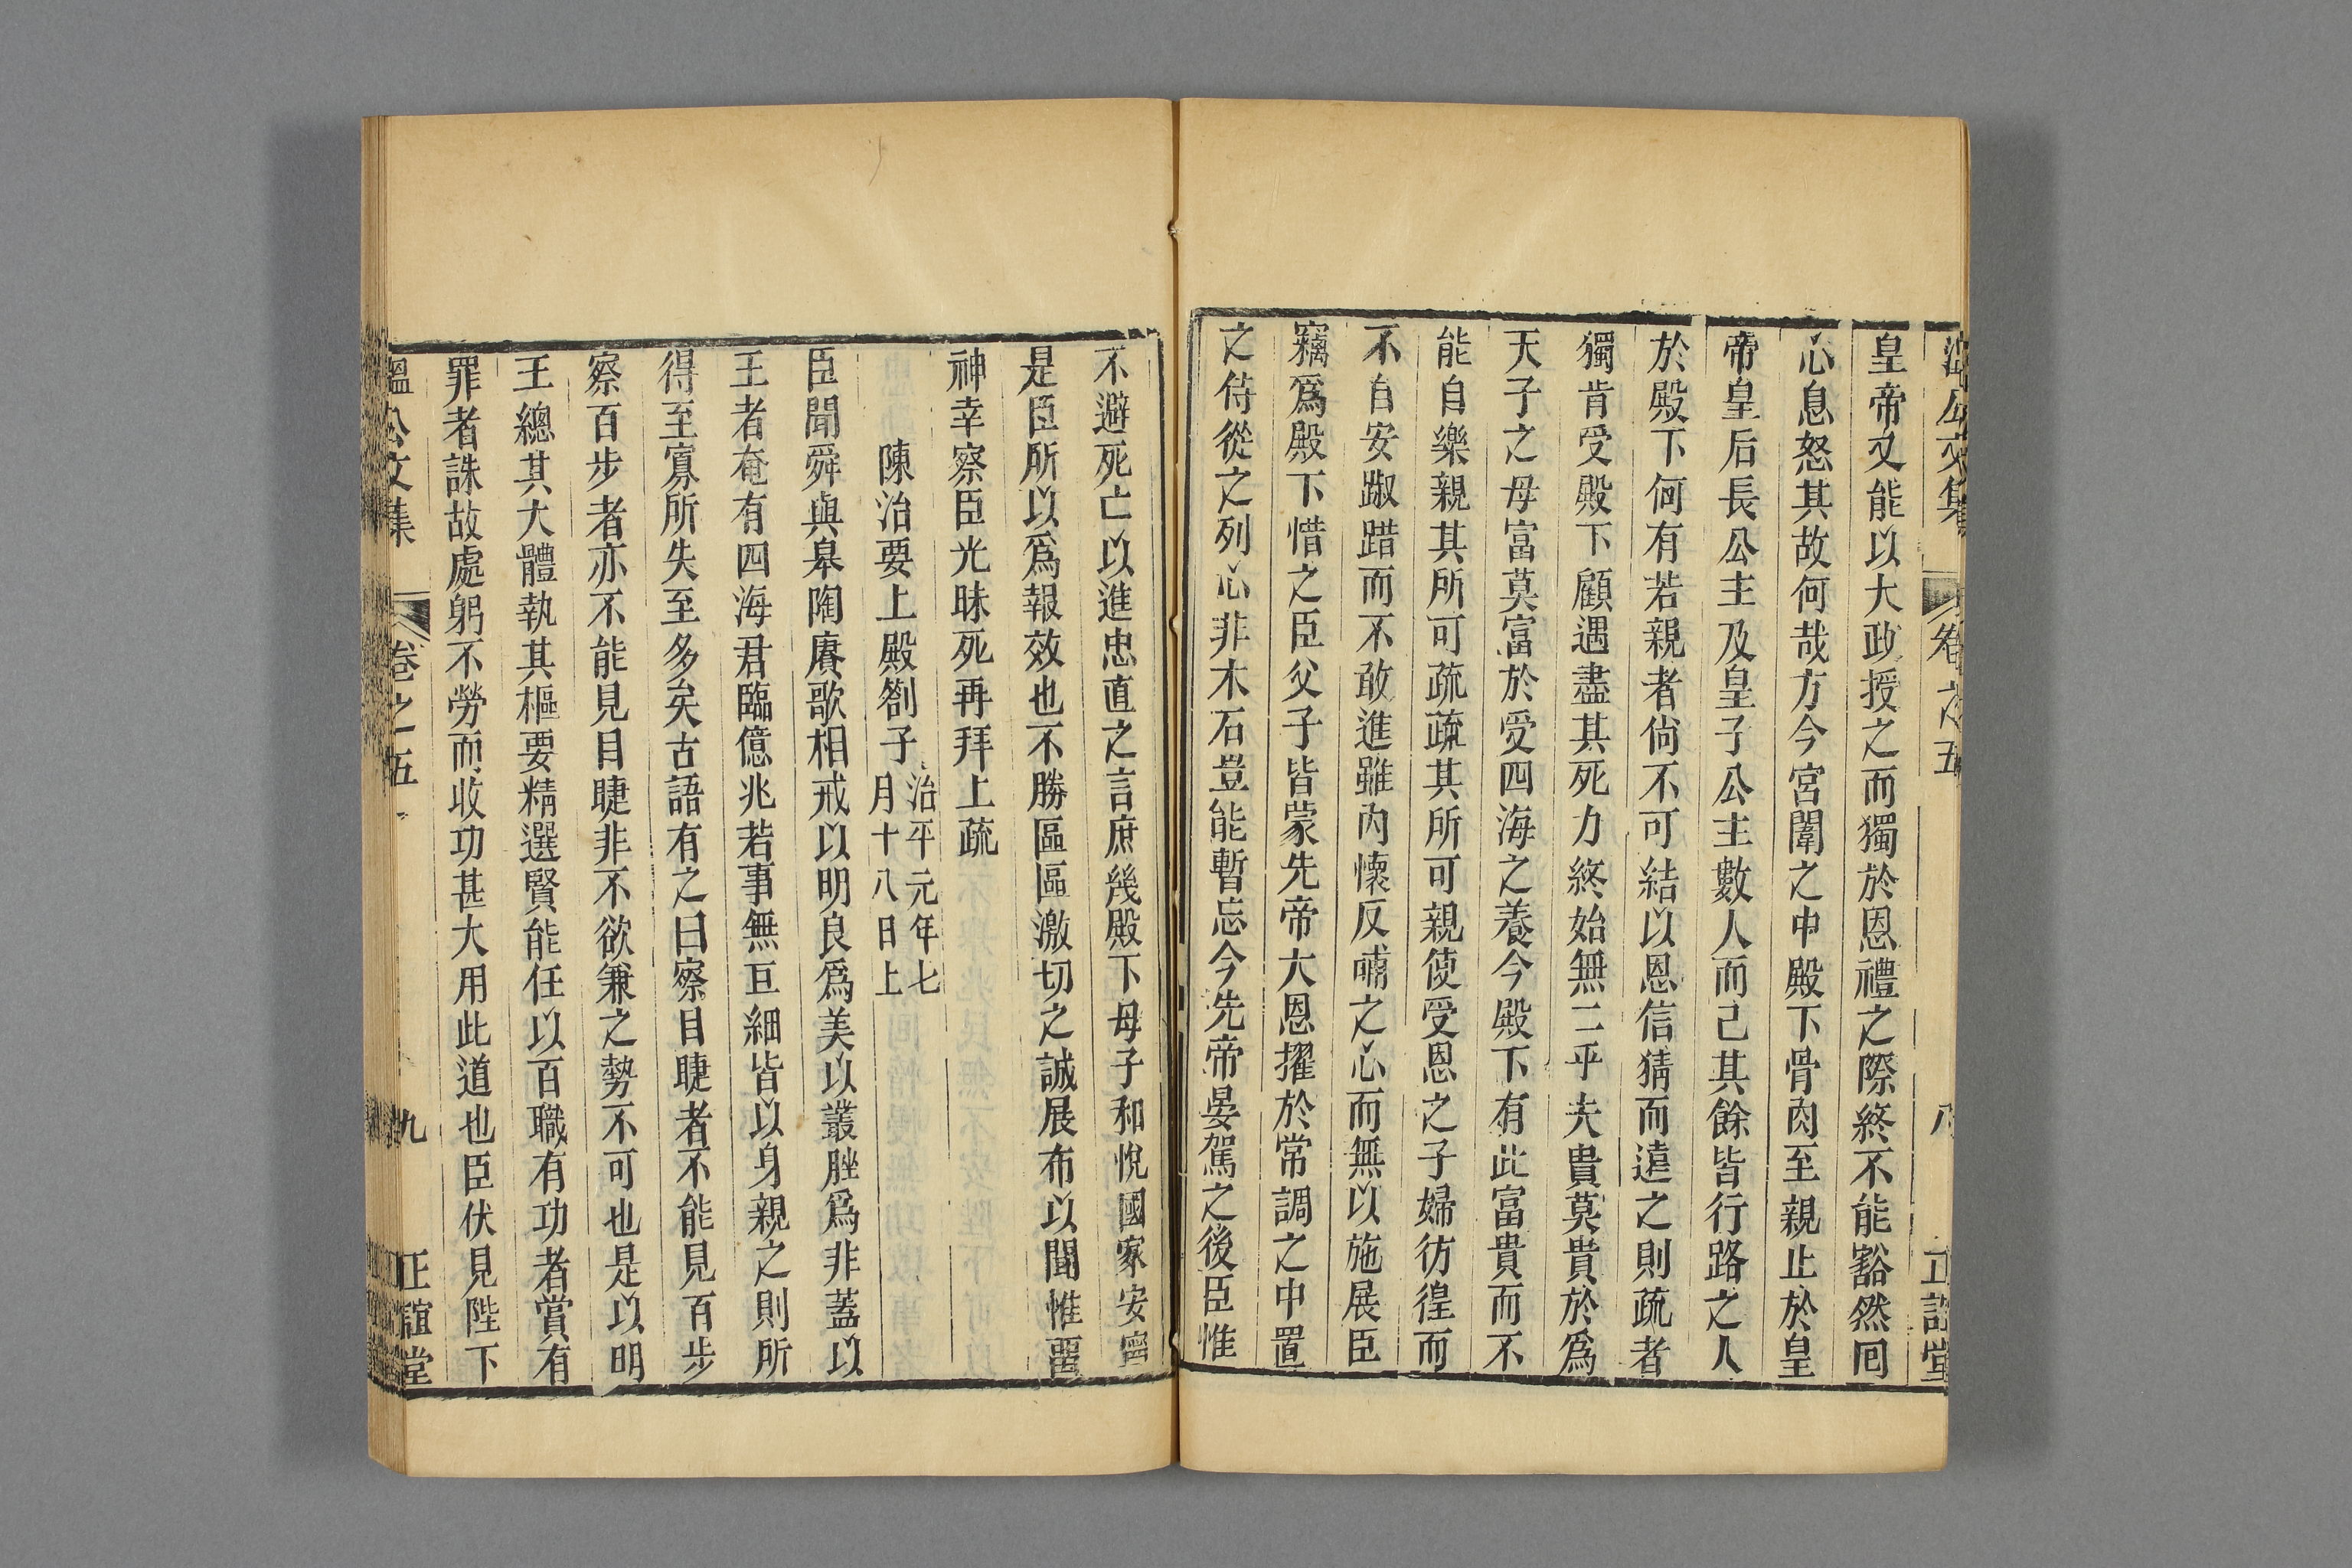 溫公文集 卷之五 八 正誼堂
皇帝又能以大政授之而獨於恩禮之際終不能豁然回
心息怒其故何哉方今宮闈之中殿下骨肉至親止於皇
帝皇后長公主及皇子公主數人而己其餘皆行路之人
於殿下何有若親者尙不可結以恩信猜而遠之則疏者
獨肯受殿下顧遇盡其死力終始無二乎夫貴莫貴於爲
天子之母富莫富於受四海之養今殿下有此富貴而不
能自樂親其所可疏疏其所可親使受恩之子婦彷徨而
不自安踧踖而不敢進雖內懷反哺之心而無以施展臣
竊爲殿下惜之臣父子皆蒙先帝大恩擢於常調之中置
之侍從之列心非木石豈能暫忘今先帝晏駕之後臣惟
不避死亡以進忠直之言庶幾殿下母子和悅國家安寧
是臣所以爲報效也不勝區區激切之誠展布以聞惟畱
神幸察臣光昧死再拜上疏
陳治要上殿劄子治平元年七
月十八日上
臣聞舜與皋陶賡歌相戒以明良爲美以叢脞爲非蓋以
王者奄有四海君臨億兆若事無亘細皆以身親之則所
得至寡所失至多矣古語有之曰察目睫者不能見百步
察百步者亦不能見目睫非不欲兼之勢不可也是以明
王總其大體執其樞要精選賢能任以百職有功者賞有
罪者誅故處躬不勞而收功甚大用此道也臣伏見陛下
溫公文集 卷之五 九 正誼堂